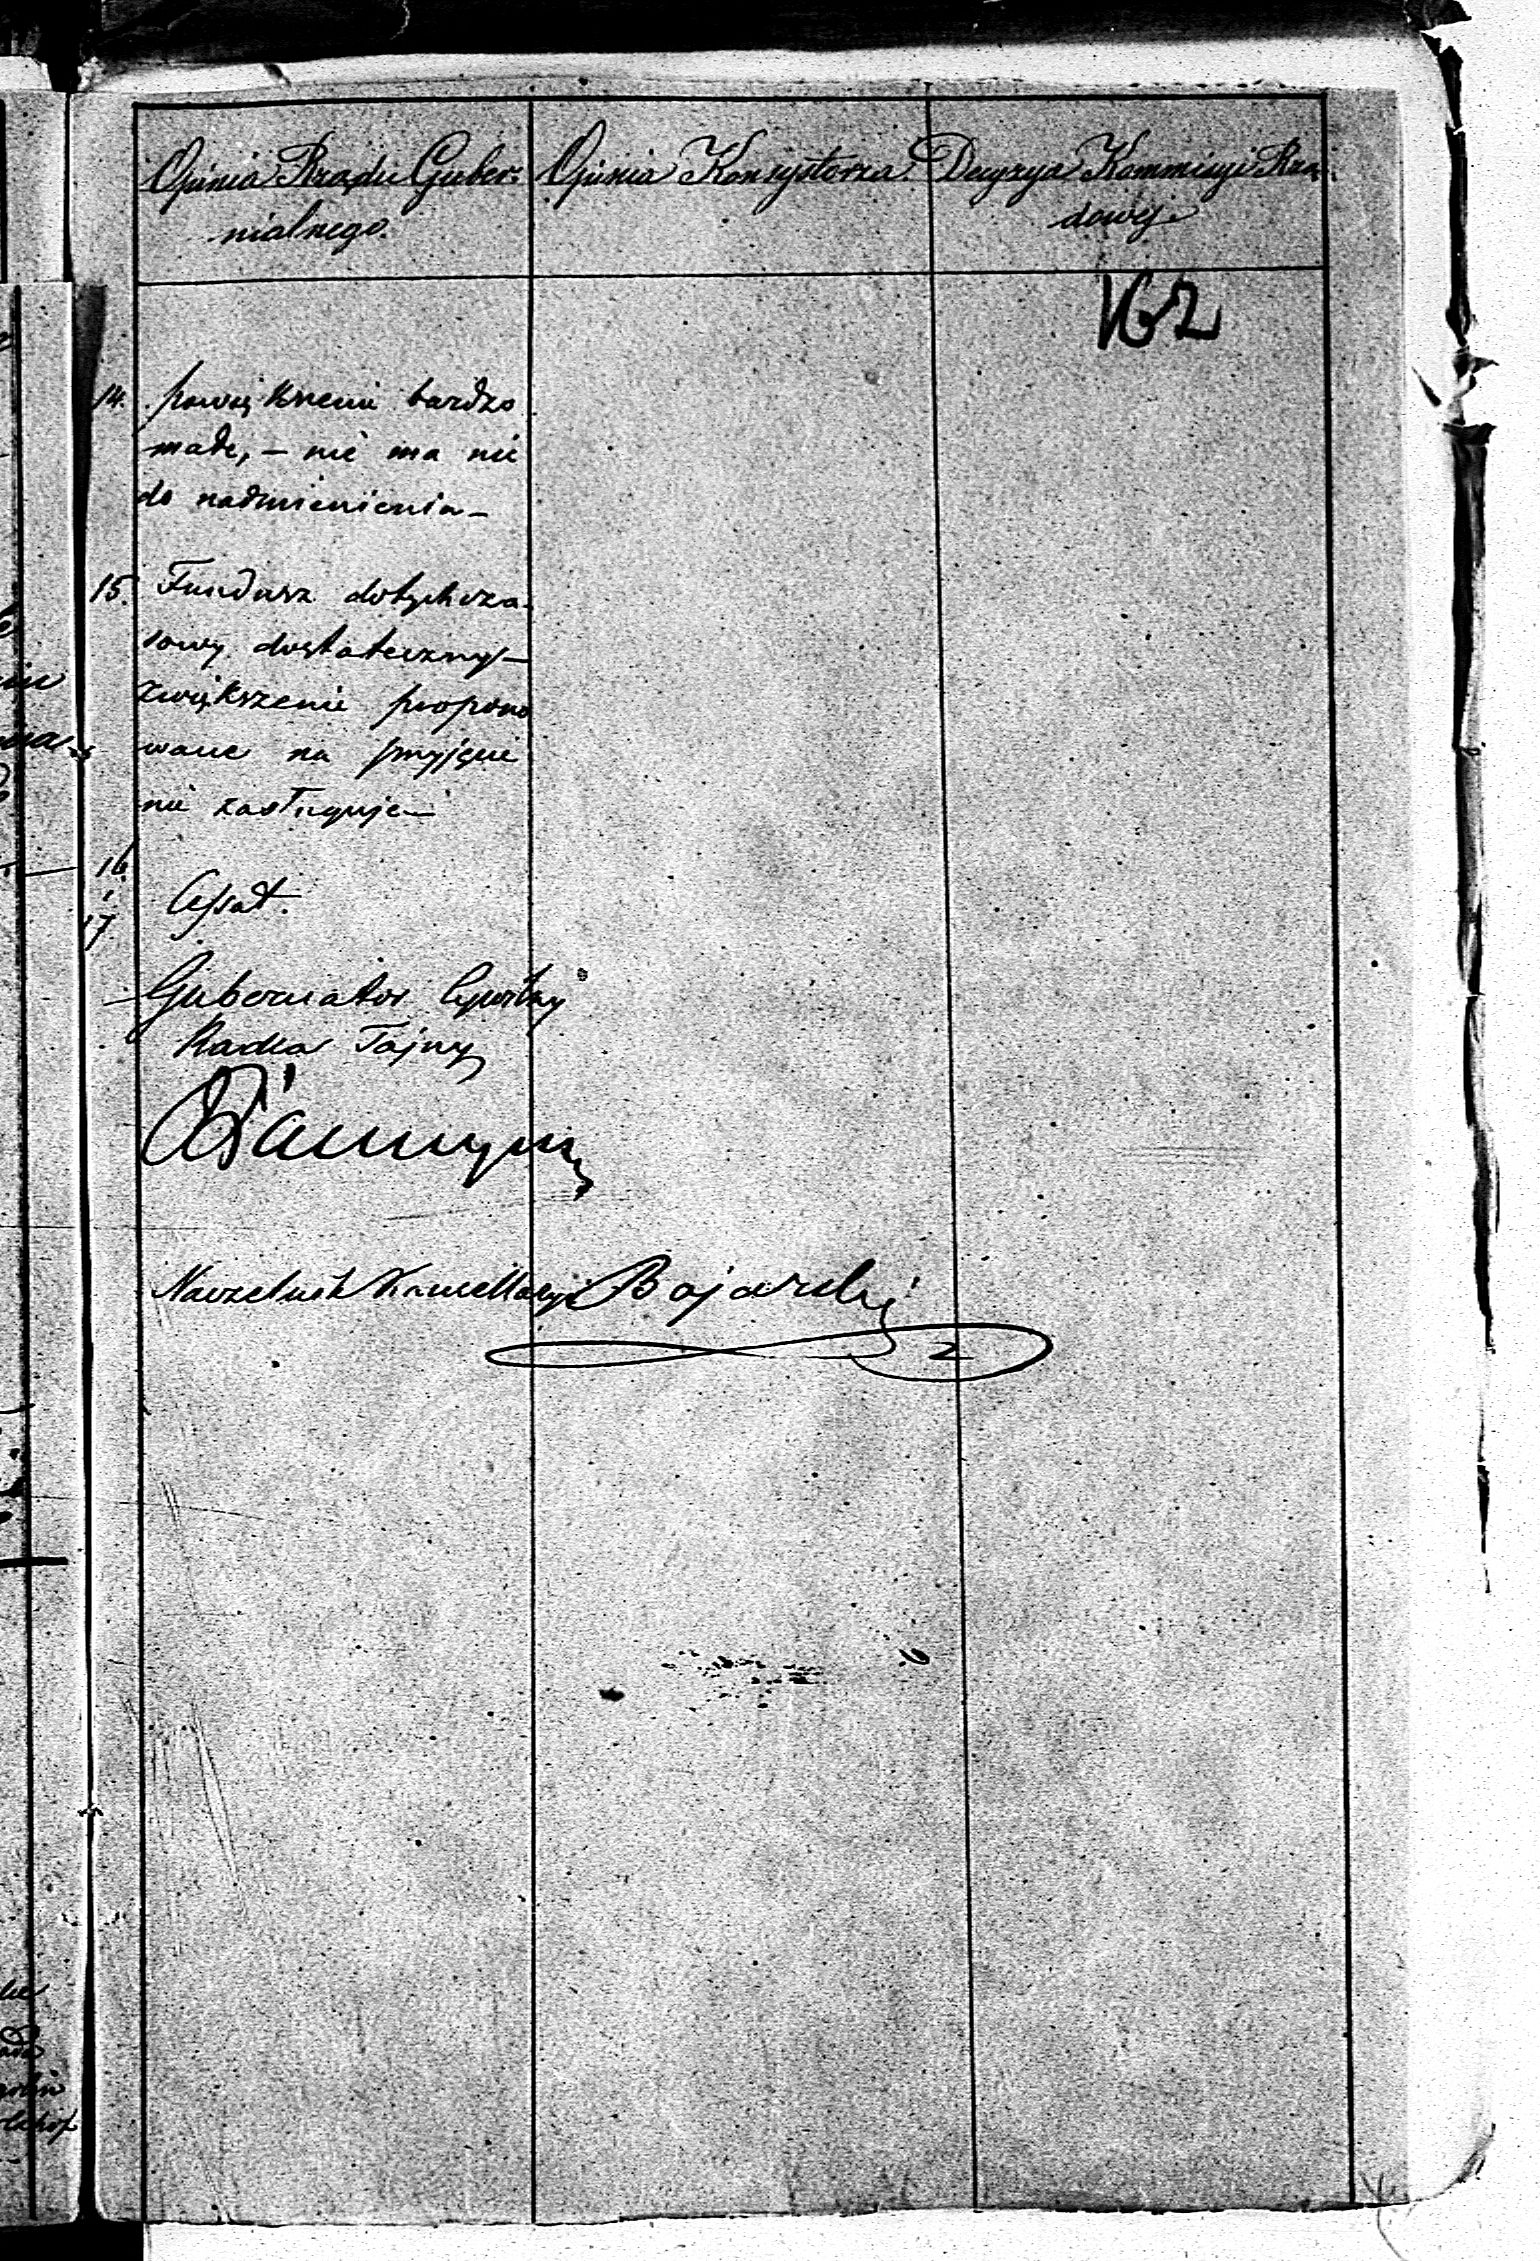 Opinia Rządu Guber-
nialnego.
Opinia Konsystorza
Decyzya Kommissyi Rzą-
dowej
162
14. powiększenie bardzo
małe, – nie ma nic
do nadmienienia –
15. Fundusz dotychcza-
sowy dostateczny –
zwiększenie propono
wane na przyjęcie
nie zasługuje –
16
i
17. Cessat.
Gubernator Cywilny
Radca Tajny
Naczelnik Kancellaryi Bojarski